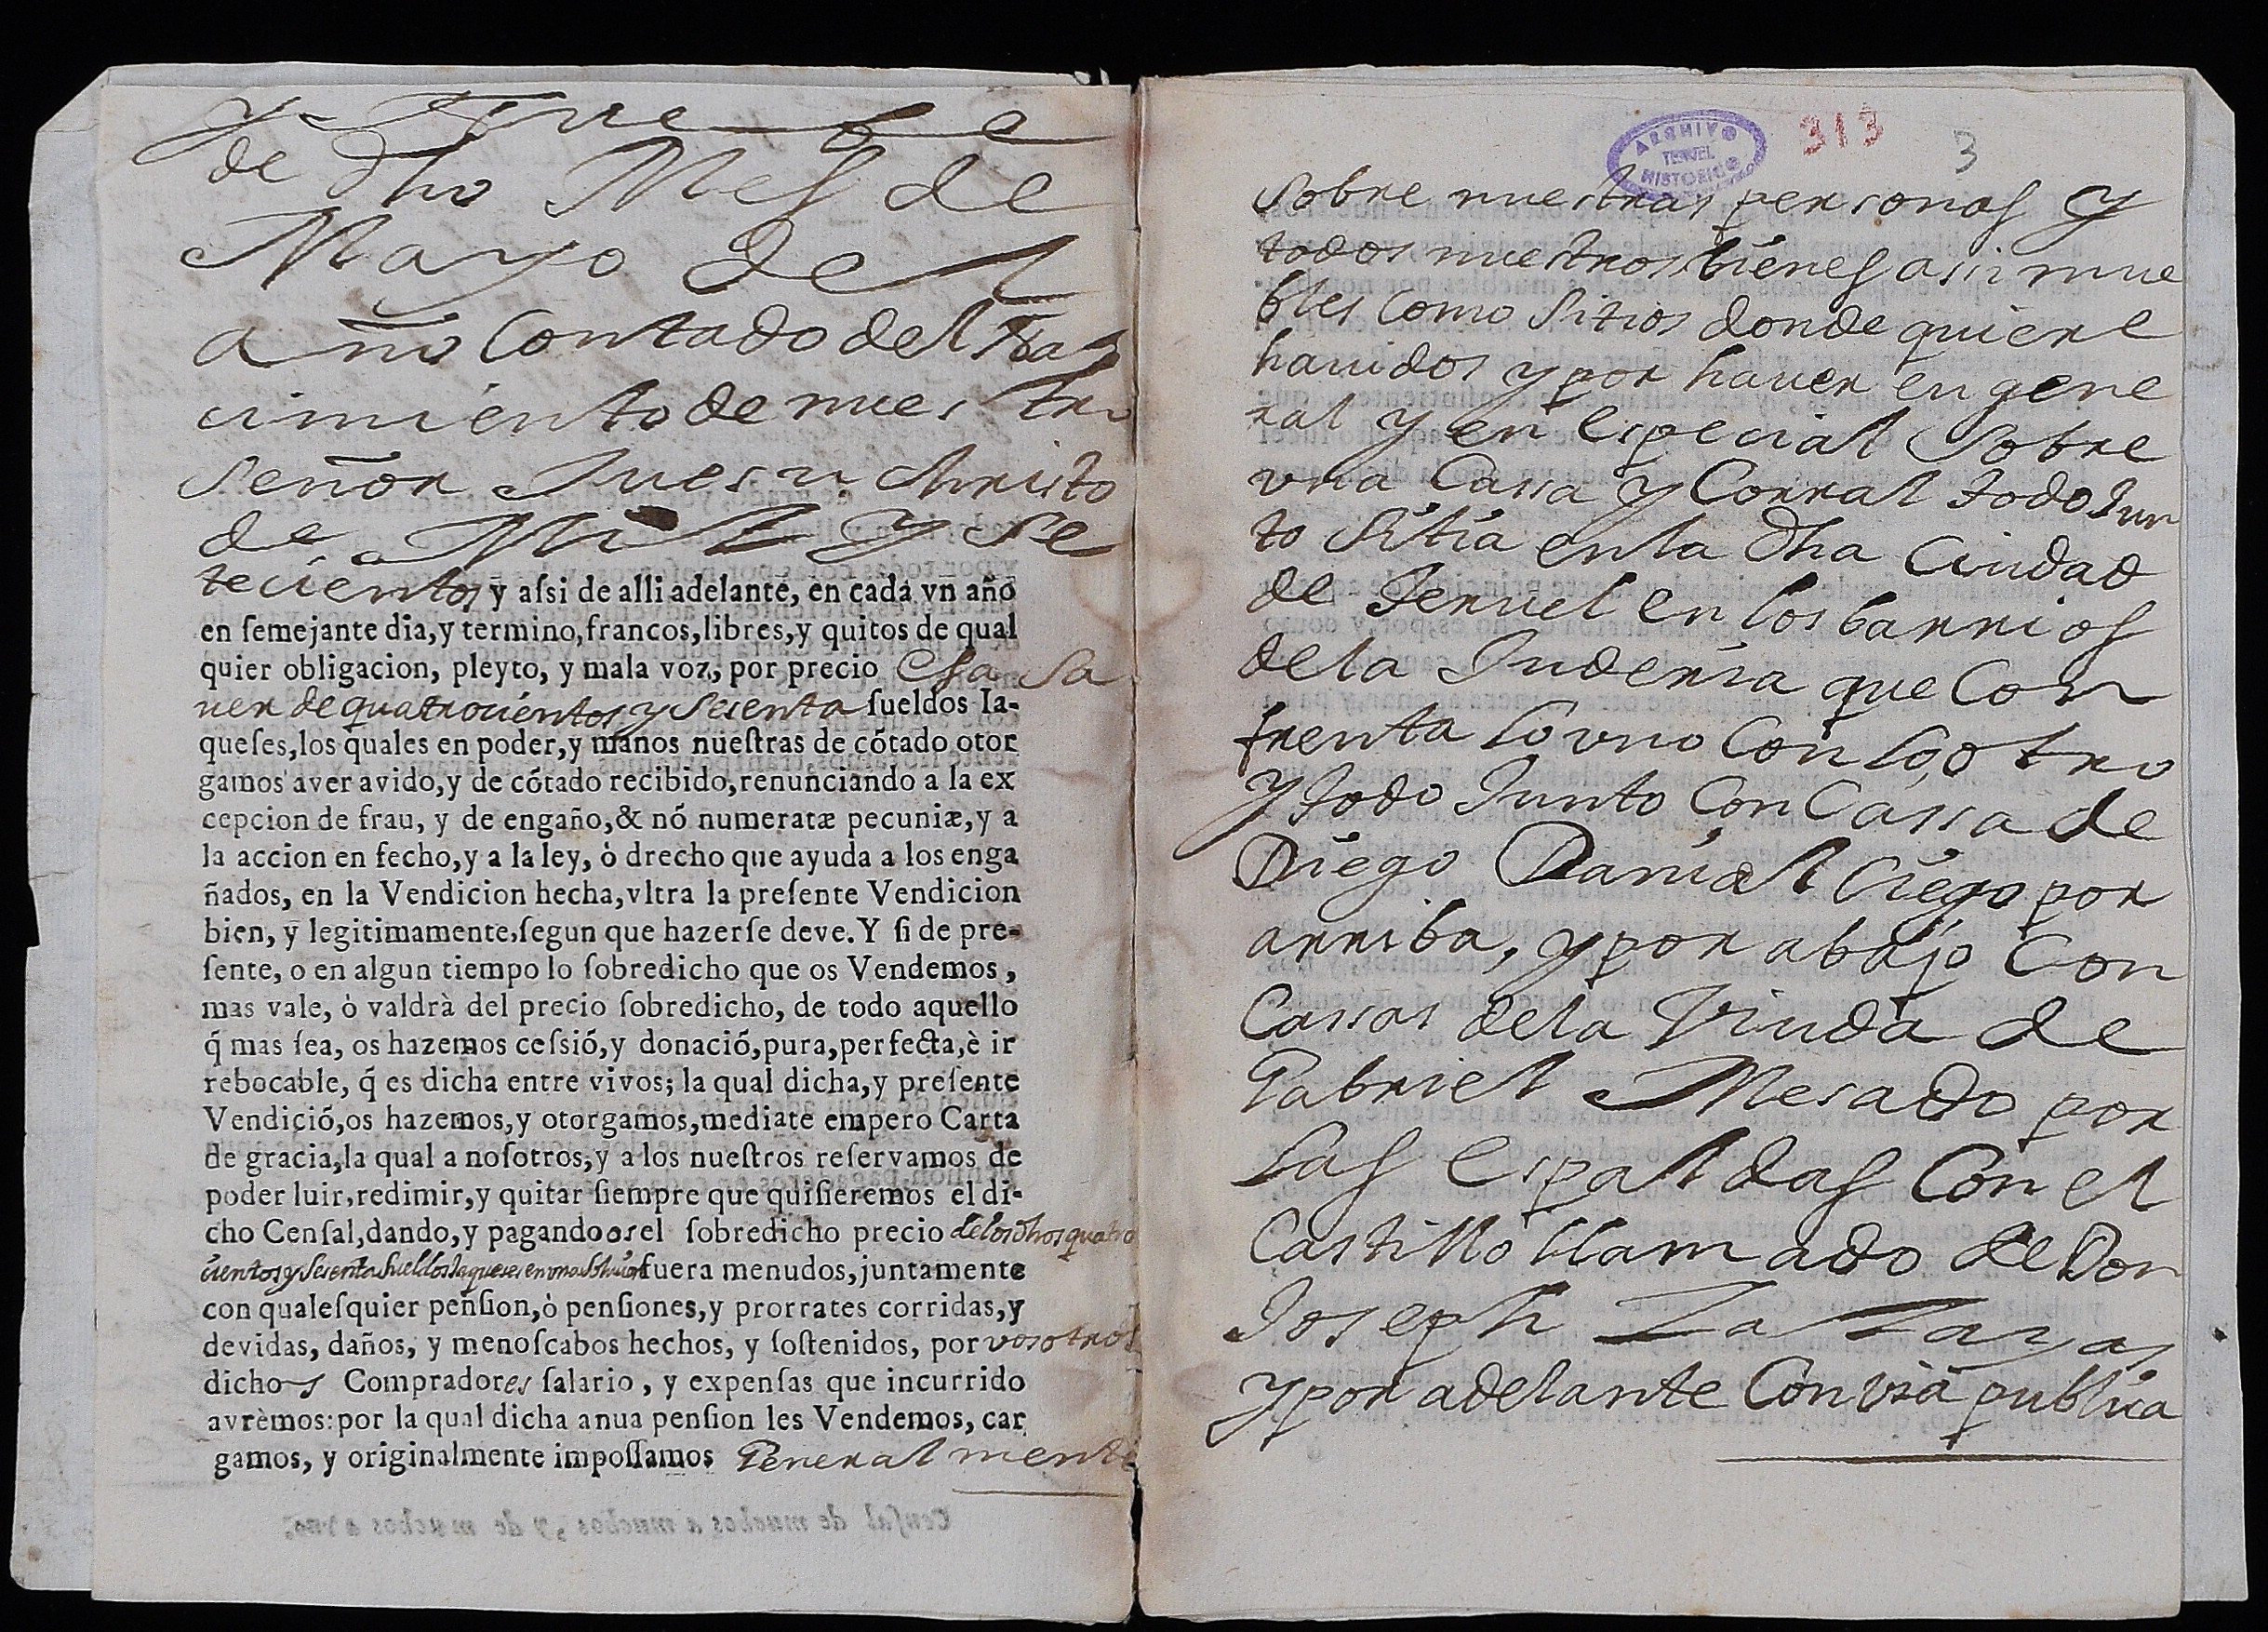 y nuebe
de dho Mes de
Mayo del
año Contado del Na
cimiento de nuestro
Señor Juesu Christo
de Mil y Se
tecientos y aſsi de alli adelante, en cada vn año
en ſemejante dia, y termino, francos, libres, y quitos de qual
quier obligacion, pleyto, y mala voz, por precio Es a Sa
uer de quatrocientos y Sesenta ſueldos Ia-
queſes, los quales en poder, y manos nueſtras de cõtado otor
gamos aver avido, y de cõtado recibido, renunciando a la ex
cepcion de frau, y de engaño, & nó numeratæ pecuniæ, y a
la accion en fecho, y a la ley, ò drecho que ayuda a los enga
ñados, en la Vendicion hecha, vltra la preſente Vendicion
bien, y legitimamente, ſegun que hazerſe deve. Y ſi de pre-
ſente, o en algun tiempo lo ſobredicho que os Vendemos,
mas vale, ò valdrà del precio ſobredicho, de todo aquello
q̃ mas ſea, os hazemos ceſsió, y donació, pura, perfecta, è ir
rebocable, q̃ es dicha entre vivos; la qual dicha, y preſente
Vendició, os hazemos, y otorgamos, mediate empero Carta
de gracia, la qual a noſotros, y a los nueſtros reſervamos de
poder luir, redimir, y quitar ſiempre que quiſieremos el di-
cho Cenſal, dando, y pagandoos el ſobredicho precio de los dhos quatro
cientos y Sesenta Sueldos Jaqueses en vna Soluçion fuera menudos, juntamente
con qualeſquier penſion, ò penſiones, y prorrates corridas, y
devidas, daños, y menoſcabos hechos, y ſoſtenidos, por vosotros
dichos Compradores ſalario, y expenſas que incurrido
avrèmos: por la qual dicha anua penſion les Vendemos, car
gamos, y originalmente impoſſamos Generalmente
Cenſal de muchos a muchos, y de muchos a vno.
ARCHIVO
TERUEL
HISTORICO
313
3
Sobre nuestras personas y
todos nuestros bienes assi mue
bles como Sitios donde quiere
hauidos y por hauer en gene
ral y en especial Sobre
vna Cassa y Corral todo Jun
to Sitia en la dha Ciudad
de Teruel en los barrios
de la Juderia que Con
frenta lo vno Con lo otro
y todo Junto Con Cassa de
Diego Danial Ciego por
arriba, y por abajo Con
Cassas de la Viuda de
Gabriel Mesado por
las espaldas Con el
Castillo llamado de Don
Joseph La Laya
y por adelante Con via publica